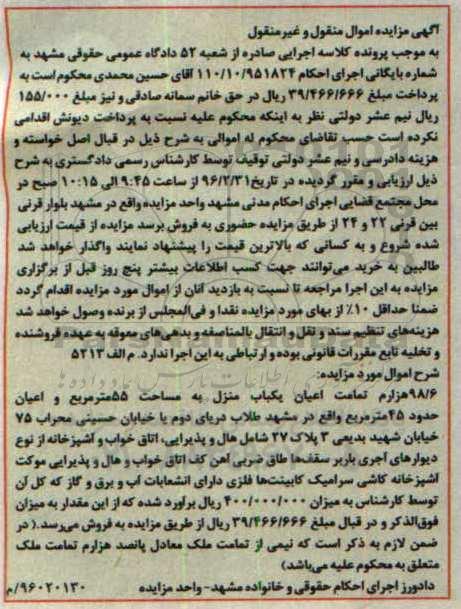 آگهی مزایده اموال منقول و غیرمنقول
به موجب پرونده کلاسه اجرایی صادره از شعبه ۵۲ دادگاه عمومی حقوقی مشهد به
شماره بایگانی اجرای احکام ۱۱۰/۱۰/۹۵۱۸۲۴ آقای حسین محمدی محکوم است به
پرداخت مبلغ ۳۹/۴۶۶/۶۶۶ ریال در حق خانم سمانه صادقی و نیز مبلغ ۱۵۵/۰۰۰
ریال نیم عشر دولتی نظر به اینکه محکوم علیه نسبت به پرداخت دیونش اقدامی
نکرده است حسب تقاضای محکوم له اموالی به شرح ذیل در قبال اصل خواسته و
هزینه دادرسی و نیم عشر دولتی توقیف توسط کارشناس رسمی دادگستری به شرح
ذیل ارزیابی و مقرر گردیده در تاریخ ۹۶/۲/۳۱ از ساعت ۹:۴۵ الی ۱۰:۱۵ صبح در
محل مجتمع قضایی اجرای احکام مدنی مشهد واحد مزایده واقع در مشهد بلوار قرنی
بین قرنی ۲۲ و ۲۴ از طریق مزایده حضوری به فروش برسد مزایده از قیمت ارزیابی
شده شروع و به کسانی که بالاترین قیمت را پیشنهاد نمایند واگذار خواهد شد
طالبین به خرید می‌توانند جهت کسب اطلاعات بیشتر پنج روز قبل از برگزاری
مزایده به این اجرا مراجعه تا نسبت به بازدید آنان از اموال مورد مزایده اقدام گردد
ضمنا حداقل ۱۰٪ از بهای مورد مزایده نقدا و فی‌المجلس از برنده وصول خواهد شد
هزینه‌های تنظیم سند و نقل و انتقال بالمناصفه و بدهی‌های معوقه به عهده فروشنده
و تخلیه تابع مقررات قانونی بوده و ارتباطی به این اجرا ندارد. م الف ۵۲۱۳
شرح اموال مورد مزایده:
۹۸/۶هزارم تمامت اعیان یکباب منزل به مساحت ۵۵مترمربع و اعیان
حدود ۴۵مترمربع واقع در مشهد طلاب دریای دوم یا خیابان حسینی محراب ۷۵
خیابان شهید بدیعی ۳ پلاک ۲۷ شامل هال و پذیرایی، اتاق خواب و آشپزخانه از نوع
دیوارهای آجری باربر سقف‌ها طاق ضربی آهن کف اتاق خواب و هال و پذیرایی موکت
آشپزخانه کاشی سرامیک کابینت‌ها فلزی دارای انشعابات آب و برق و گاز که کل آن
توسط کارشناس به میزان ۴۰۰/۰۰۰/۰۰۰ ریال برآورد شده که از این مقدار به میزان
فوق‌الذکر و در قبال مبلغ ۳۹/۴۶۶/۶۶۶ ریال از طریق مزایده به فروش می‌رسد.( در
ضمن لازم به ذکر است که نیمی از تمامت ملک معادل پانصد هزارم تمامت ملک
متعلق به محکوم علیه می‌باشد)
دادورز اجرای احکام حقوقی و خانواده مشهد- واحد مزایده ۹۶۰۲۰۱۳۰/م